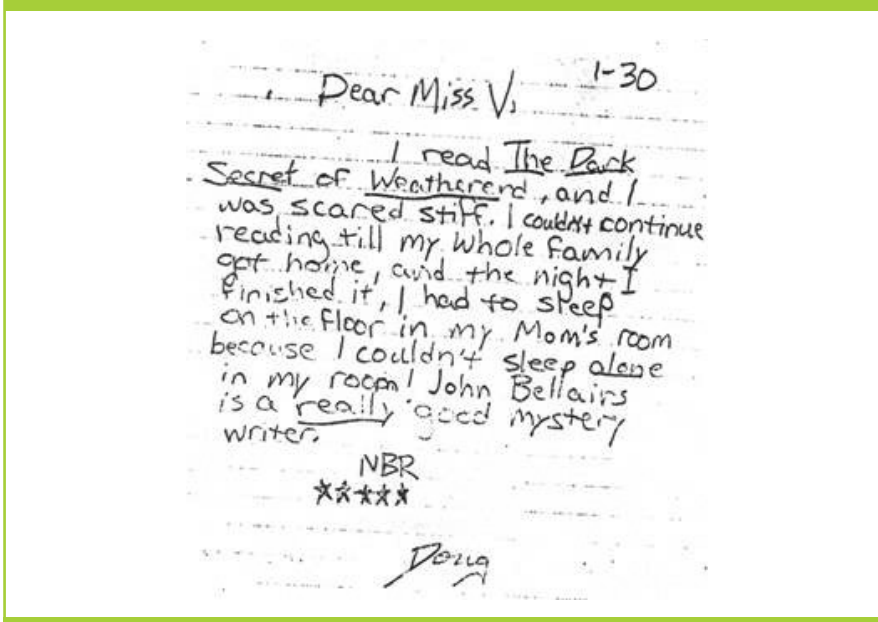 1-30
Dear Miss V,
I read The Dark
Secret of Weatherend, and I
was scared stiff. I couldn't continue
reading till my whole family
got home, and the night I
finished it, I had to sleep
on the floor in my Mom's room
because I couldn't sleep alone
in my room! John Bellairs
is a really good mystery
writer.
NBR
☆☆☆☆☆
Doug